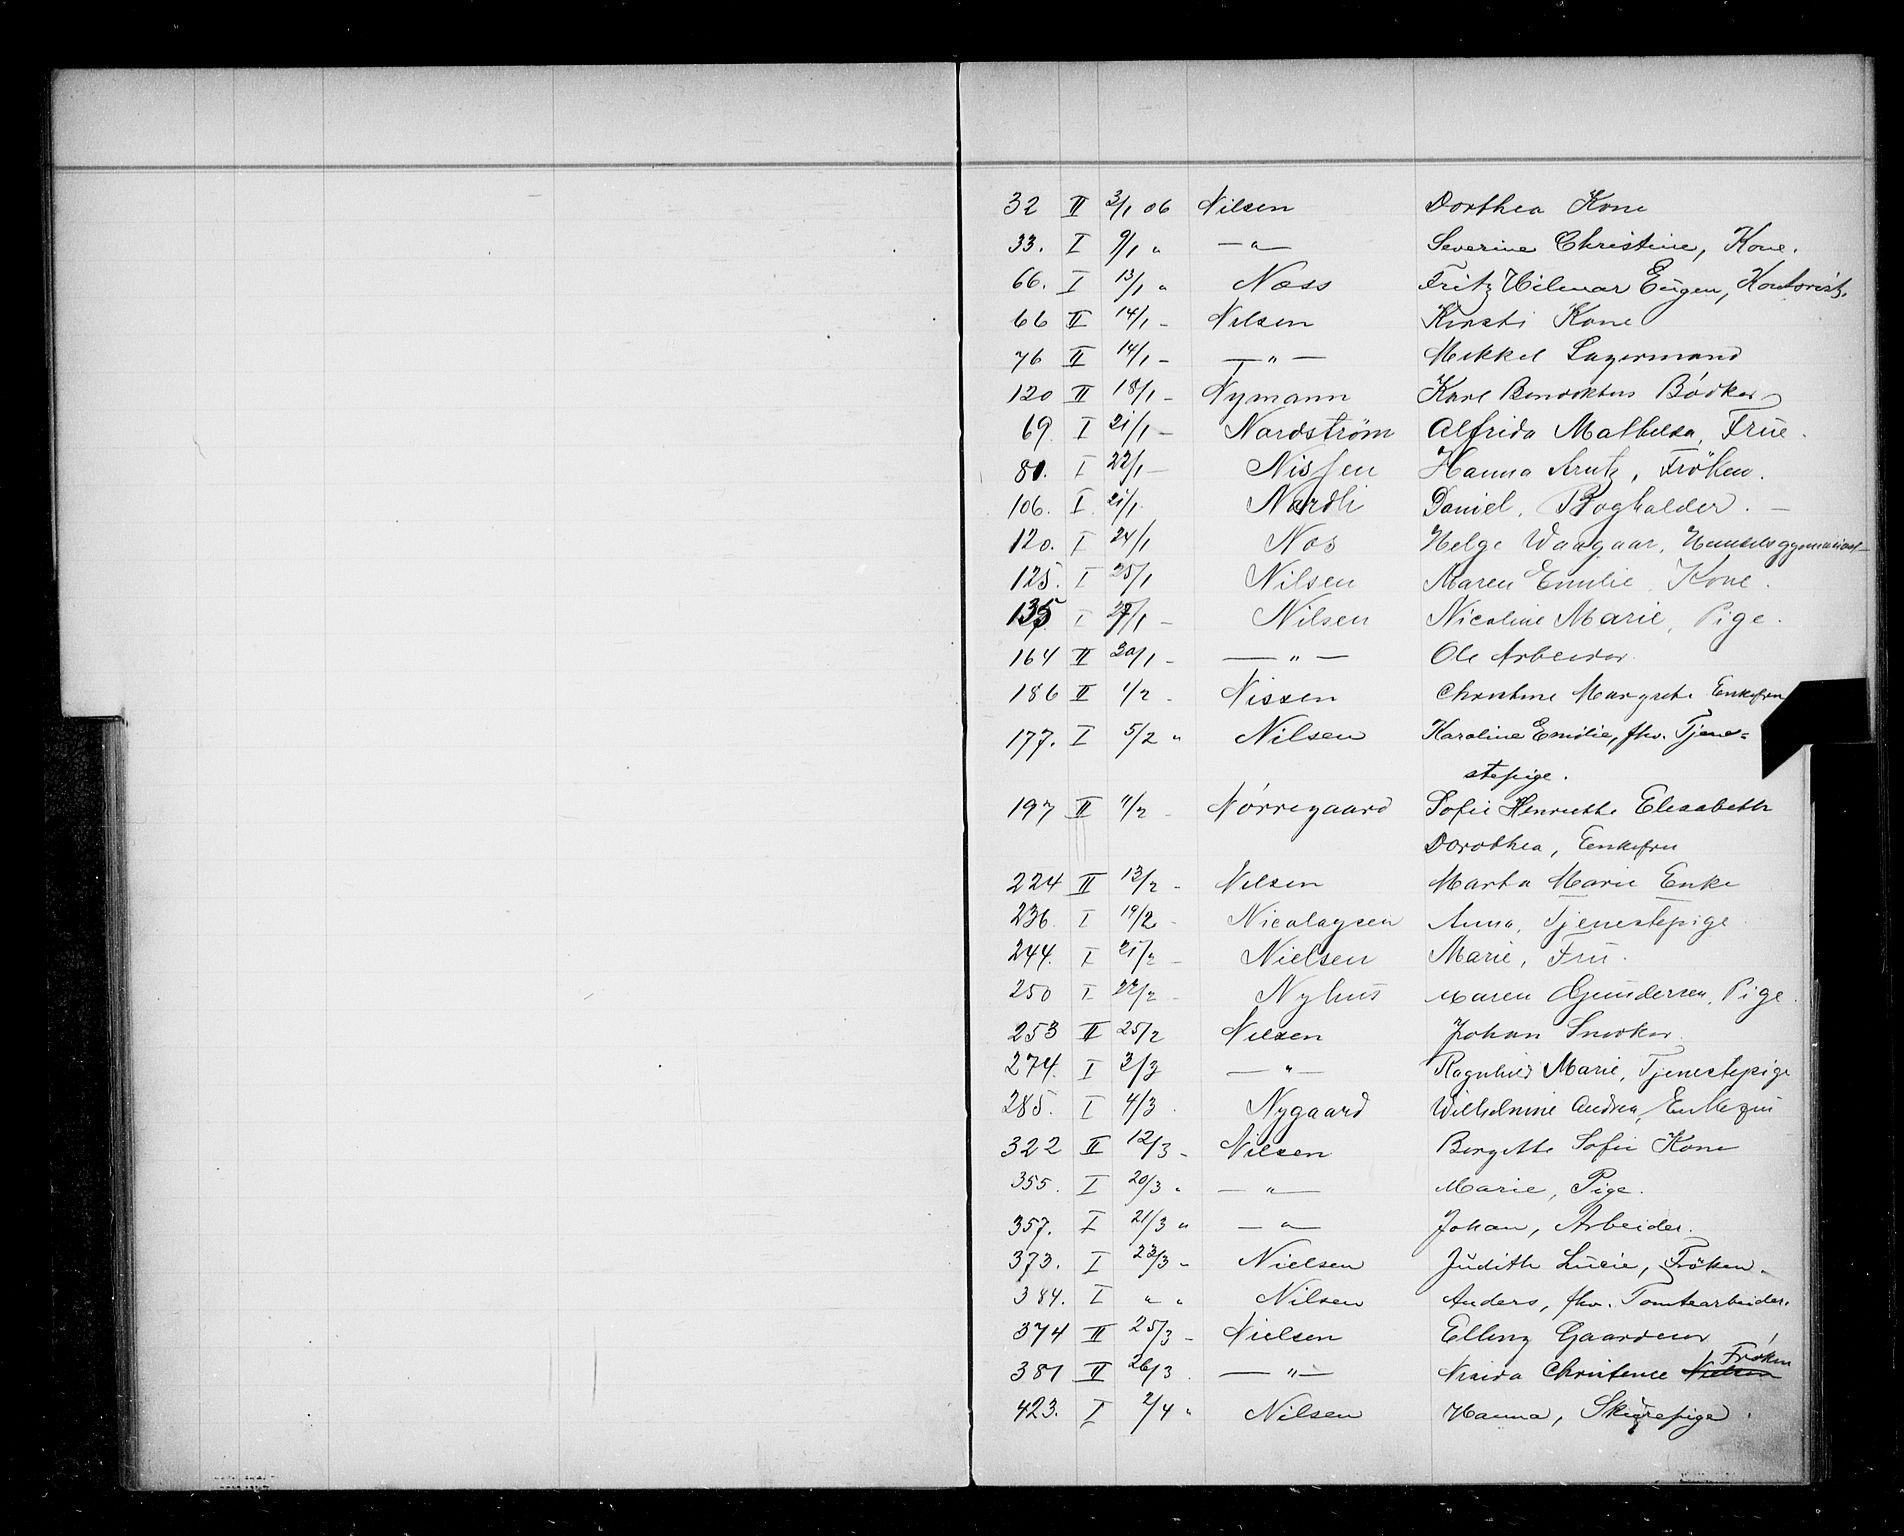 32 II 3/1 06 Nilsen Dorthea Kone
33. I 9/1 " —"— Severine Christine, Kone.
66. I 13/1 " Næss Fritz Hilmar Eugen, Kontorist.
66 II 14/1 - Nilsen Kirsti Kone
76 II 14/1 - —"— Mikkel Lagermand
120 II 18/1 - Nymann Karl Benediktus Bödker
69. I 21/1 - Nordström Alfrida Mathilda, Frue.
81. I 22/1 - Nissen Hanna Arntz, Fröken.
106. I 21/1 Nordli Daniel, Bogholder. —
120. I 24/1 Nos Helge Waagaar,
125. I 25/1 Nilsen Maren Emilie, Kone.
135 I 27/1 - Nilsen Nicoline Marie, Pige.
164 II 30/1 - —"— Ole Arbeider
186 II 1/2 - Nissen Christine Margrete Enkefru
177. I 5/2 " Nilsen Karoline Emilie, fhv. Tjene=
stepige.
197 II 11/2 - Nórregaard Sofie Henriette Elisabeth
Dorothea, Enkefru
224 II 13/2 - Nilsen Marta Marie Enke
236. I 19/2 - Nicolaysen Anna, Tjenestepige
244. I 21/2 - Nielsen Marie, Fru.
250 I 22/2 - Nyhus Maren Gundersen, Pige.
253 II 25/2 Nilsen Johan Snedker
274. I 3/3 —"— Ragnhild Marie, Tjenestepige
285. I 4/3. Nygaard Wilhelmine Andrea, Enkefru
322 II 12/3 - Nilsen Birgitte Sofie Kone
355. I 20/3 " —"— Marie, Pige.
357. I 21/3 " —"— Johan, Arbeider.
373. I 23/3 - Nielsen Judith Lucie, Fröken.
384. I " " Nilsen Anders, fhv. Tomtearbeider.
374 II 25/3 - Nielsen Elling Gaardeier
381 II 26/3. —"— Christence Nielsen Frøken
423. I 2/4 " Nilsen Hanna, Skurepige.